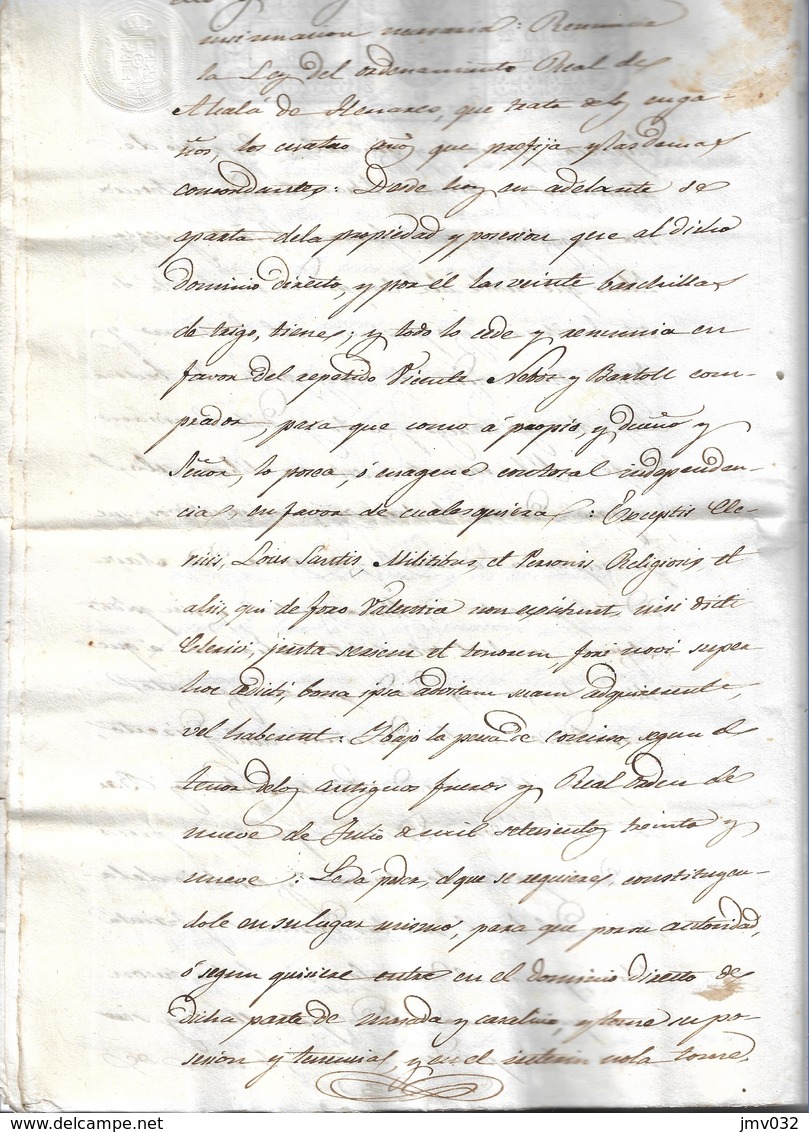 insinuacion necesaria: Renuncia
la Ley del ordenamiento Real de
Alcalá de Henares, que trata delos enga-
ños, los cuatro años que prefija y las demas
concordantes: Desde hoy en adelante se
aparta dela propiedad y posesion que al dicho
dominio directo, y por él las veinte barchillas
de trigo, tiene; y todo lo cede y renuncia en
favor del repetido Vicente Nebot y Bartoll com-
prador, para que como á propio, y dueño y
Señor, lo posea, ó enagene contotal independen-
cia, en favor de cualesquiera: Exceptis Cle-
ricis, Locis Santis, Militibus, et Personis Religiosis et
aliis, qui de foro Valentia non existunt, nisi dicti
Clerici, justa seriem et tenorem, fori novi super
hoc editi, bona ipsa ad vitam suam adquirerent,
vel haberent. Y bajo la pena de comiso, segun el
tenor delos antiguos fueros y Real orden de
nueve de Julio de mil setecientos treinta y
nueve: Le dá poder, el que se requiere, constituyen-
dole en su lugar mismo, para que por su autoridad,
ó segun quisiere entre en el dominio directo de
dicha parte de morada y casalicio, y tome su po-
sesion y tenencia, y en el interin no la tome,
jmv032